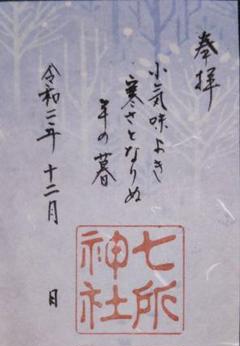 奉拝
小気味よき
寒さとなりぬ
年の暮
令和二年 十二月 日
七所
神社